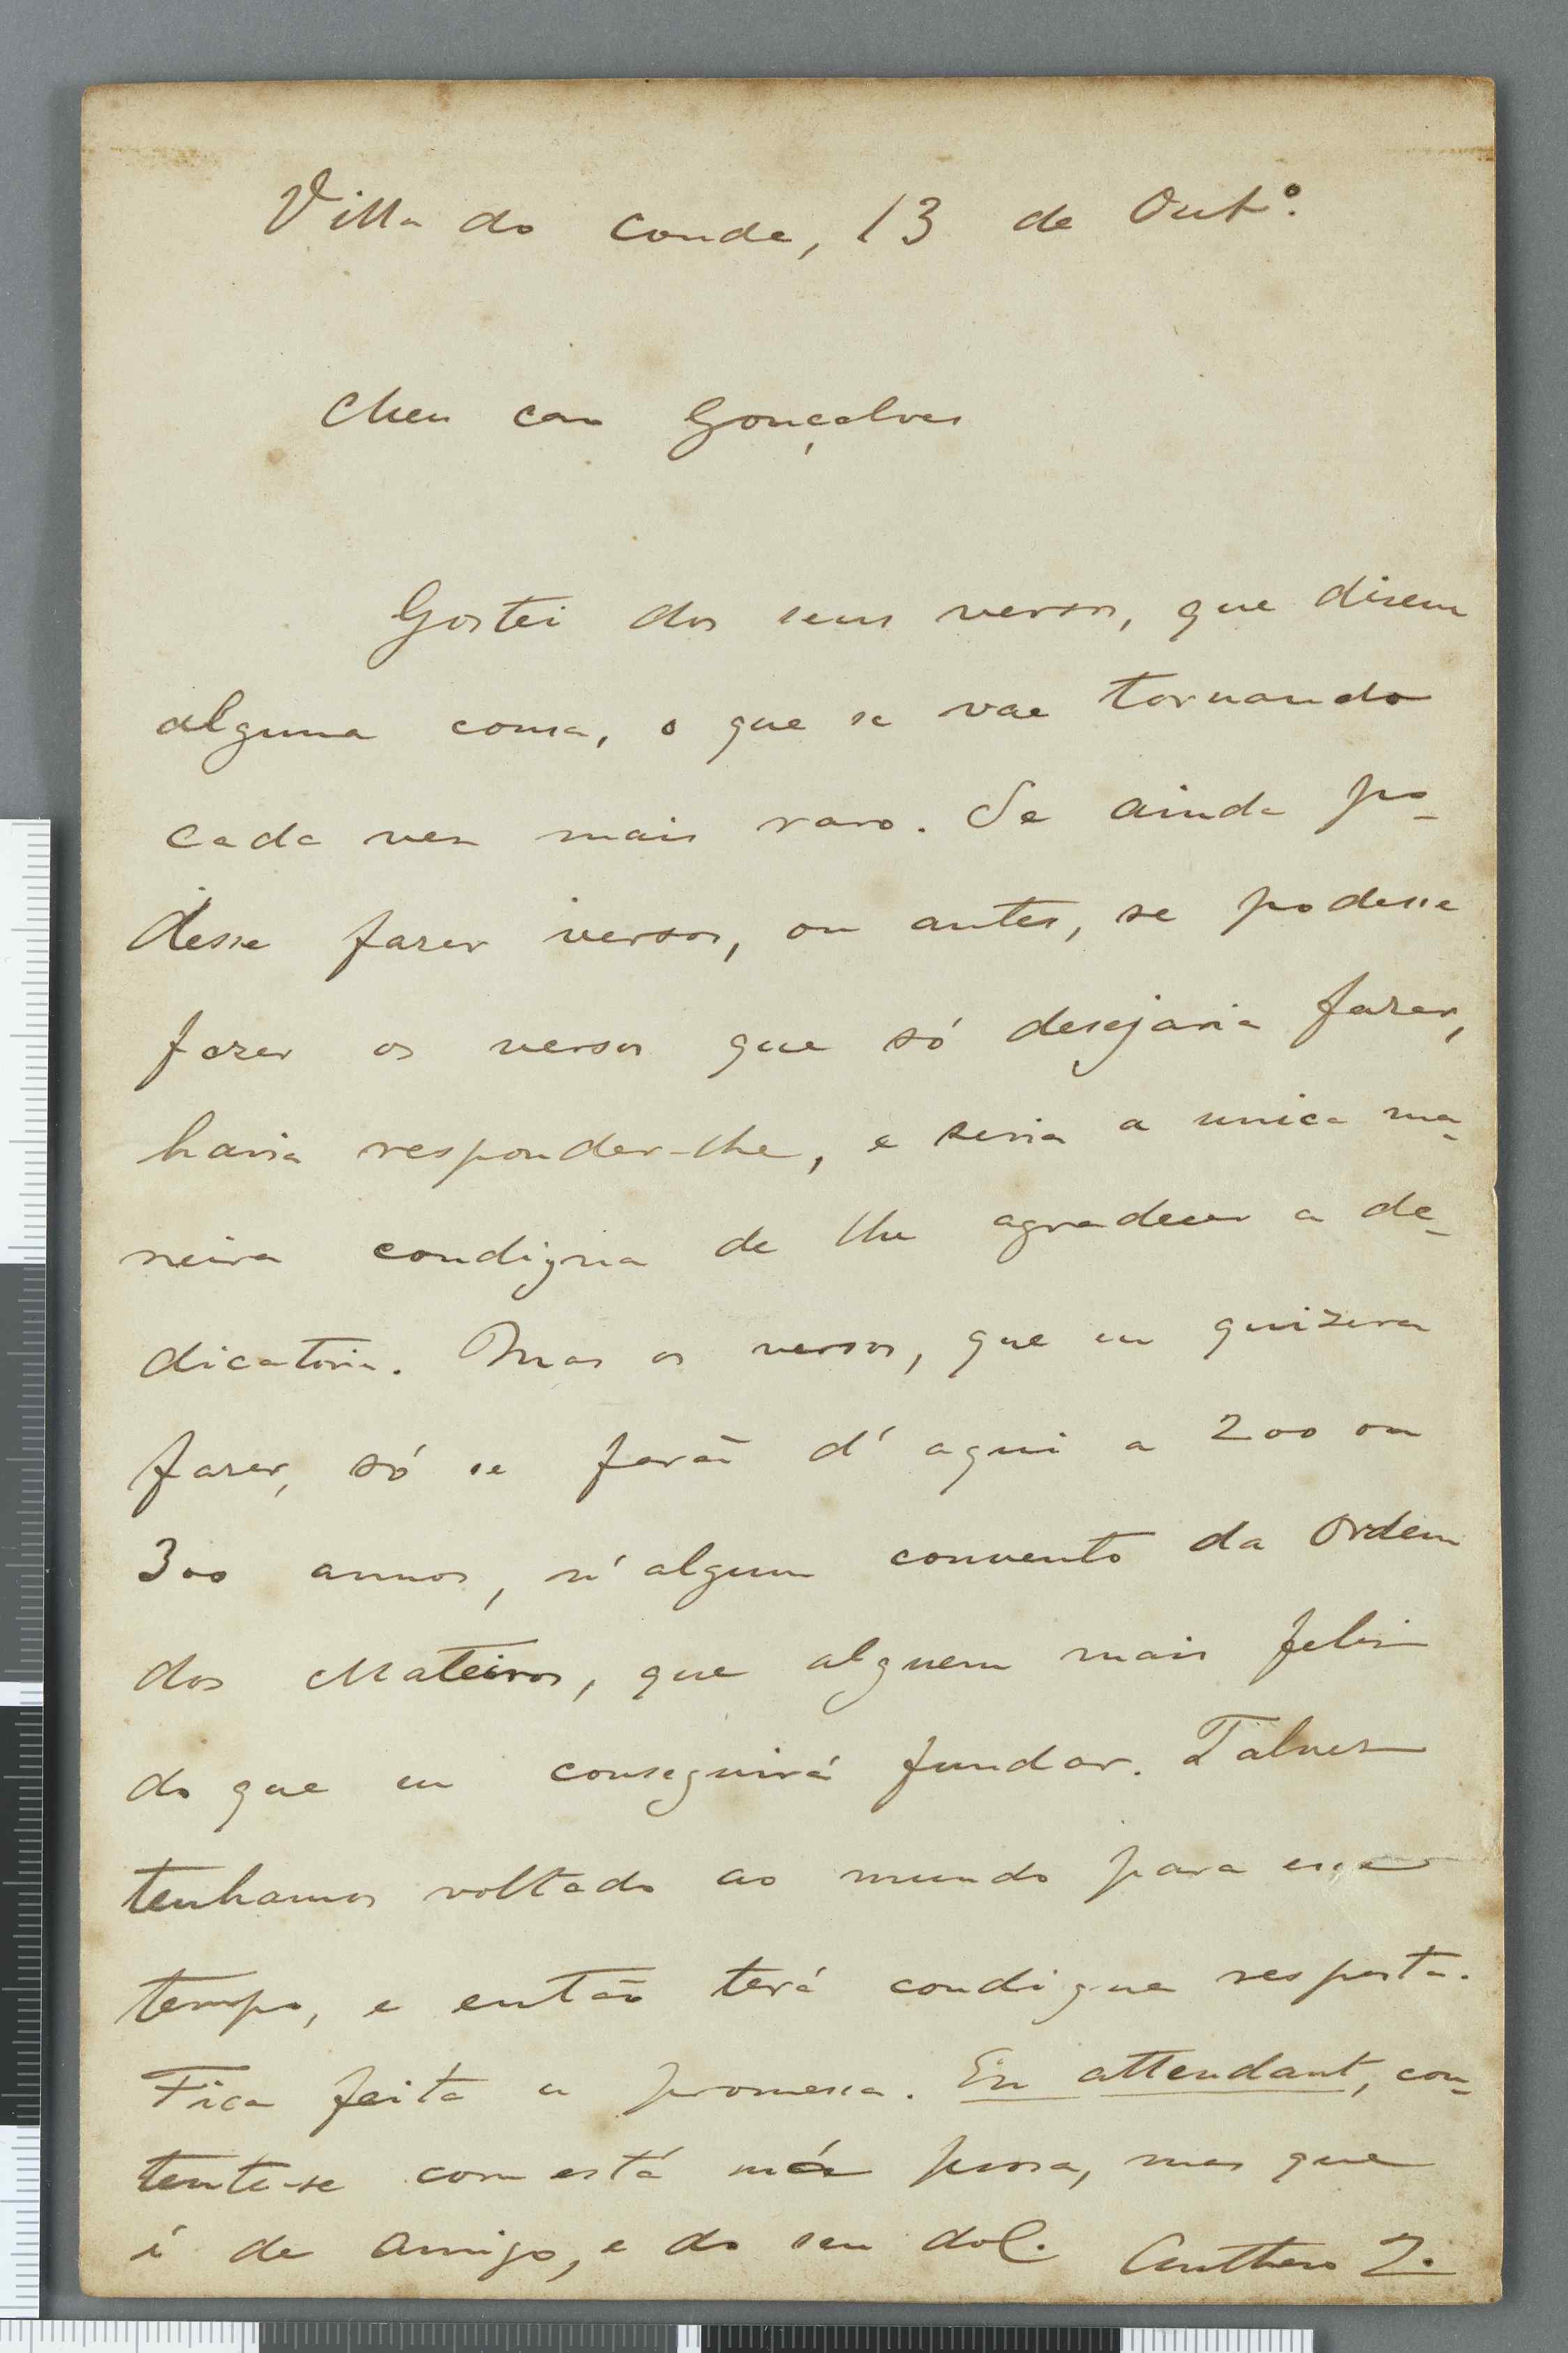 Villa do Conde, 13 de Outº.
Meu caro Gonçalves
Gostei dos seus versos, que disem
alguma cousa, o que se vae tornando
cada vez mais raro. Se ainda po-
desse faser versos, ou antes, se podesse
faser os versos que só desejaria faser,
havia responder-lhe, e seria a unica ma-
neira condigna de lhe agradecer a de-
dicatoria. Mas os versos, que eu quizera
faser, só se farão d'aqui a 200 ou
300 annos, n'algum convento da Ordem
dos Mateiros, que alguem mais feliz
do que eu conseguirá fundar. Talvez
tenhamos voltado ao mundo para esse
tempo, e então terá condigna resposta.
Fica feita a promessa. En attendant, con-
tente-se com está má prosa, mas que
é de amigo, e do seu do C.
Anthero Q.